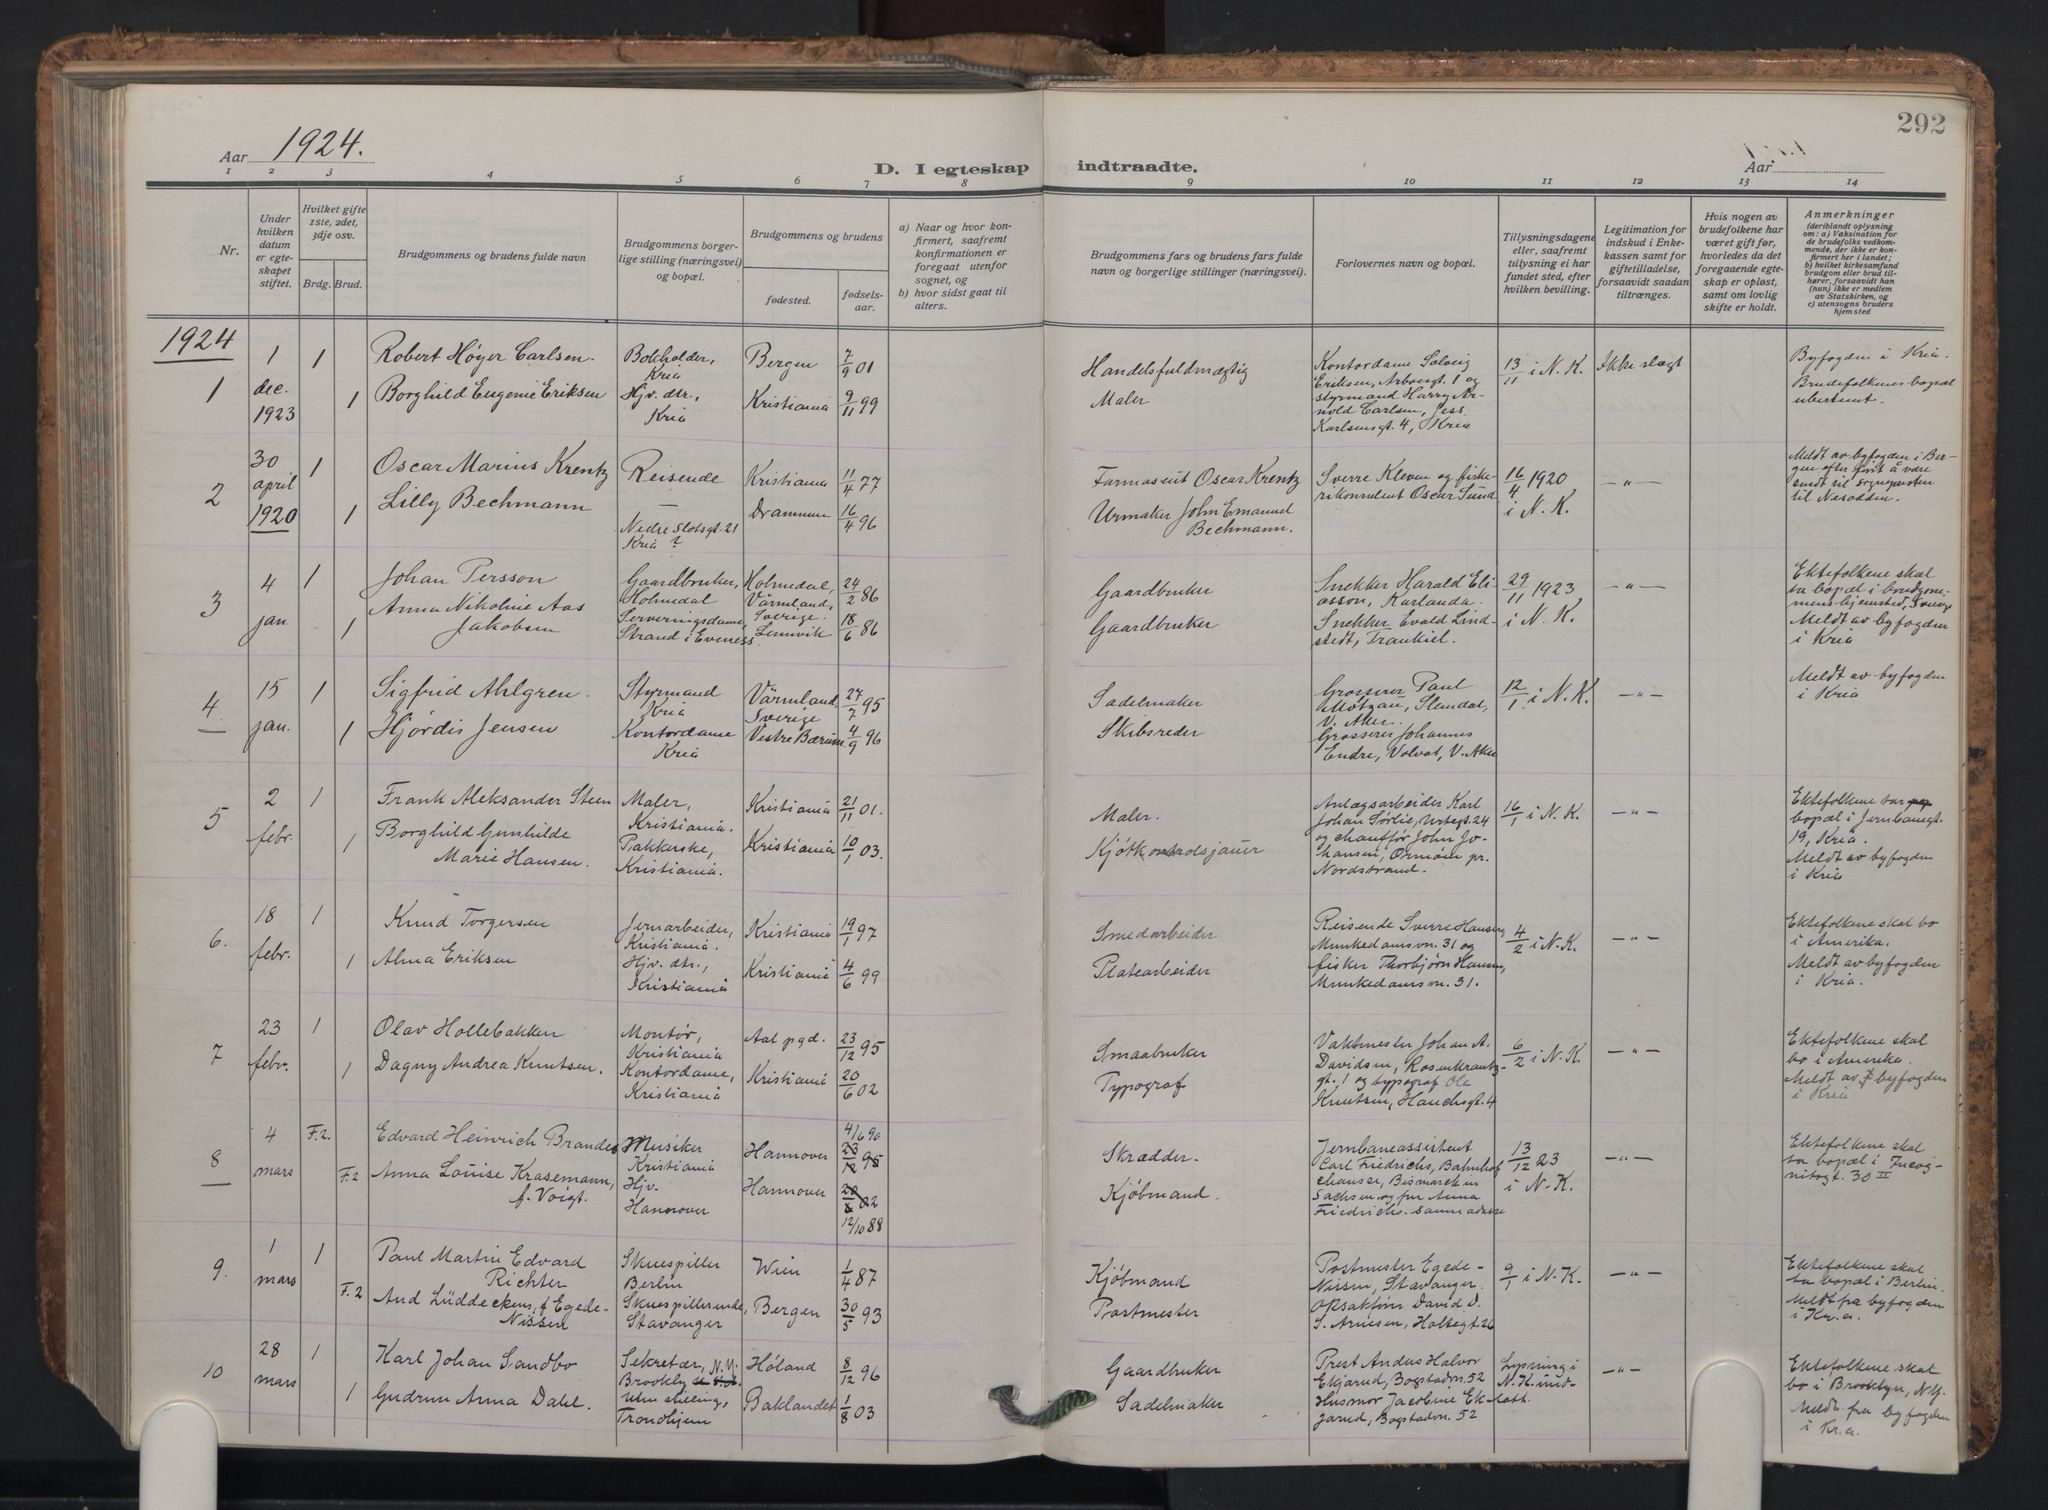 292
Aar 1924.
Aar
D. I egteskap indtraadte.
1 2 3 4 5 6 7 8 9 10 11 12 13 14
Nr.
Under hvilken datum er egteskapet stiftet.
Hvilket gifte 1ste, 2det, 3dje osv.
Brdg. Brud.
Brudgommens og brudens fulde navn
Brudgommens borgerlige stilling (næringsvei) og bopæl.
Brudgommens og brudens
fødested.
fødselsaar.
a) Naar og hvor konfirmert, saafremt konfirmationen er foregaat utenfor sognet, og
b) hvor sidst gaat til alters.
Brudgommens fars og brudens fars fulde navn og borgerlige stillinger (næringsvei).
Forlovernes navn og bopæl.
Tillysningsdagene eller, saafremt tillysning ei har fundet sted, efter hvilken bevilling.
Legitimation for indskud i Enkekassen samt for giftetilladelse, forsaavidt saadan tiltrænges.
Hvis nogen av brudefolkene har været gift før, hvorledes da det foregaaende egteskap er opløst, samt om lovlig skifte er holdt.
Anmerkninger (deriblandt oplysning om: a) Vaksination for de brudefolks vedkommende, der ikke er konfirmert her i landet; b) hvilket kirkesamfund brudgom eller brud tilhører, forsaavidt han (hun) ikke er medlem av Statskirken, og c) utensogns bruders hjemsted
1924
1
1 dec. 1923
1
Robert Höyer Carlsen.
Bokholder, Kria
Bergen
7/9 01
Handelsfuldmægtig
1
Borghild Eugenie Eriksen
Hjv. dtr., Kria
Kristiania
9/11 99
Maler
Kontordame Solveig
Eriksen, Arboesgt. 1 og
styrmand Harry Ar-
nold Carlsen, Jess
Karlsensgt. 4, Kria
13/11 i N. K.
Ikke slegt
Byfogden i Kria
Brudefolkenes bopæl
ubestemt.
2
30 april 1920
1
Oscar Marius Krentz
Reisende
Kristiania
11/4 77
Farmaseut Oscar Krentz
1
Lilly Bechmann
—
Nedre Slotsgt. 21
Kria ?
Drammen
16/4 96
Urmaker John Emanuel
Bechmann.
Sverre Kleven og fiske-
rikonsulent Oscar Sund
16/4 1920
i N. K.
— " —
Meldt av byfogden i Ber-
gen efter först å være
sendt til sognepresten
til Nesodden.
3
4 jan
1
Johan Persson
Gaardbruker,
Holmedal
Holmedal,
Värmland,
Sverige
24/2 86
Gaardbruker
1
Anna Nikoline Aas
Jakobsen
Serveringsdame,
Strand i Eveness
Lemvik
18/6 86
Gaardbruker
Snekker Harald Eli-
asson, Karlanda.
Snekker Evald Lind-
stedt, Trankil.
29/11 1923
i N. K.
— " —
Ektefolkene skal
ta bopæl i brudgom-
mens hjemsted, Sverge
Meldt av byfogden
i Kria
4
15 jan.
1
Sigfrid Ahlgren.
Styrmand
Kria
Värmland,
Sverige
27/7 95
Sadelmaker
1
Hjördis Jensen
Kontordame
Kria
Vestre Bærum
4/9 96
Skibsreder
Grosserer Paul
Slemdal,
V. Aker.
Grosserer Johannes
Endre, Volvat, V. Aker
12/1 i N. K.
— " —
Meldt av byfogden
i Kria
5
2 febr.
1
Frank Aleksander Steen
Maler,
Kristiania.
Kristiania
21/11 01.
Maler.
1
Borghild Gunhilde
Marie Hansen.
Pakkerske,
Kristiania.
Kristiania
10/1 03.
Anlægsarbeider Karl
Johan Sörlie, Urtegt. 24
og chauffør John Jo-
hansen, Ormöen pr.
Nordstrand.
16/1 i N. K.
— " —
Ektefolkene tar
bopæl i Jernbanegt.
19, Kria.
Meldt av byfogden
i Kria
6.
18 febr.
1
Knud Torgersen
Jernarbeider,
Kristiania.
Kristiania
19/1 97
Smedarbeider
1
Alma Eriksen
Hjv. dtr.,
Kristiania
Kristiania
4/6 99
Platearbeider
Reisende Sverre Hansen,
Munkedamsvn. 31 og
fisker Thorbjörn Hansen,
Munkedamsvn. 31.
4/2 i N. K.
— " —
Ektefolkene skal bo
i Amerika.
Meldt av byfogden
i Kria.
7
23 febr.
1
Olav Hollebakken
Montör,
Kristiania
Aal pgd.
23/12 95
Smaabruker
1
Dagny Andrea Knutsen.
Kontordame,
Kristiania
Kristiania
20/6 02
Typograf
Vaktmester Johan A.
Davidsen, Rosenkrantz-
gt. 1 og typograf Ole
Knutsen, Hauchsgt. 4
6/2 i N. K
— " —
Ektefolkene skal
bo i Amerika.
Meldt av byfogden
i Kria
8
4 mars
F. 2.
Edvard Heinrich Brandes
Musiker
Kristiania
Hannover
4/6 90
Skrædder.
F. 2
Anna Louise Krasemann,
f. Voigt.
Hjv.
Hannover
Hannover
12/10 88
Kjöbmand.
Jernbaneassistent
Carl Friedrichs, Bahnhof
chausse, Bismarck en
Sachsen og fru Anna
Friedrichs. samme adresse
13/12 23
i N. K.
— " —
Ektefolkene skal
ta bopæl i Incog-
nitogt. 30 II
9.
1 mars
1
Paul Martin Edvard
Richter
Skuespiller
Berlin
Wien
1/4 87
Kjöbmand
F. 2
Aud Lüddeckens, f. Egede-
Nissen
Skuespillerinde,
Stavanger
Bergen
30/5 93
Postmester
Postmester Egede-
Nissen, Stavanger,
David D.
S. Arnesen, Holtegt. 26
9/1 i N. K.
— " —
Ektefolkene skal
ta bopæl i Berlin.
Meldt fra byfogden
i Kr.a.
10
28 mars
1
Karl Johan Sandbo
Sekretær, N. Y.
Brookly
Höland
8/12 96
Gaardbruker
1
Gudrun Anna Dahl.
Uten stilling,
Trondhjem
Baklandet
1/8 03
Sadelmaker
Prest Anders Halvor
Ekjarud, Bogstadvn. 52
Husmor Jacobine Ek-
jarud, Bogstadvn. 52
Lysning i
N. K. und-
latt.
— " —
Ektefolkene skal
bo i Brooklyn, N.Y.
Meldt fra byfogden
i Kr.a.